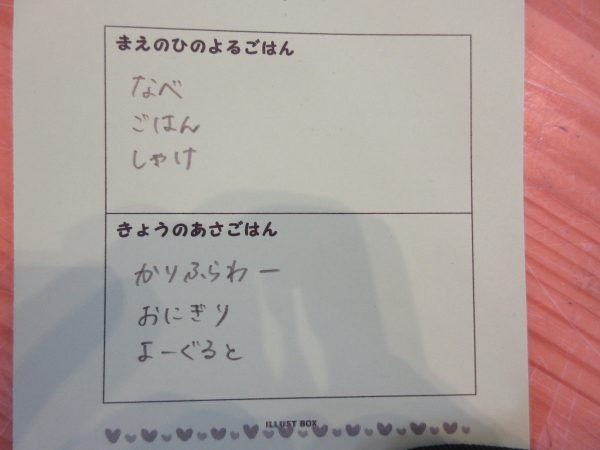 まえのひのよるごはん
なべ
ごはん
しゃけ
きょうのあさごはん
かりふらわー
おにぎり
よーぐると
ILLUST BOX